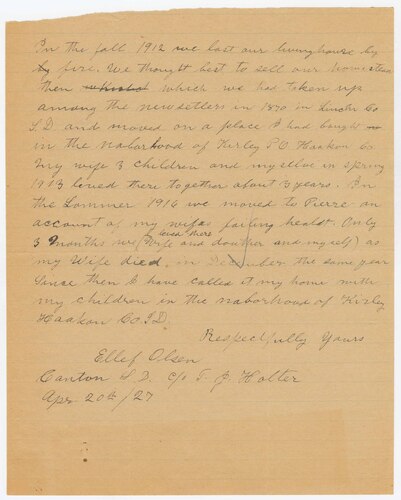 In the fall 1912 we lost our livinghouse by
by fire. We thought best to sell our homestead
then which we had taken up
among the newsetlers in 1870 in Lincln Co
S.D. and moved on a place I had bought
in the naborhood of Kirley P.O Haakon Co
my wife 3 children and my selve in spring
1913 lived there together about 3 years. In
the Sommer 1916 we moved to Pierre on
account of my wifes failing healt. Only
3 months we lived there (Wife and doughter and my self) as
my Wife died in December the same year
Since then I have called it my home with
my children in the naborhood of Kirley
Haakon Co S.D.
Respectfully Yours
Ellef Olsen
Canton S.D. c/o T. J. Holter
Apr 20th/27